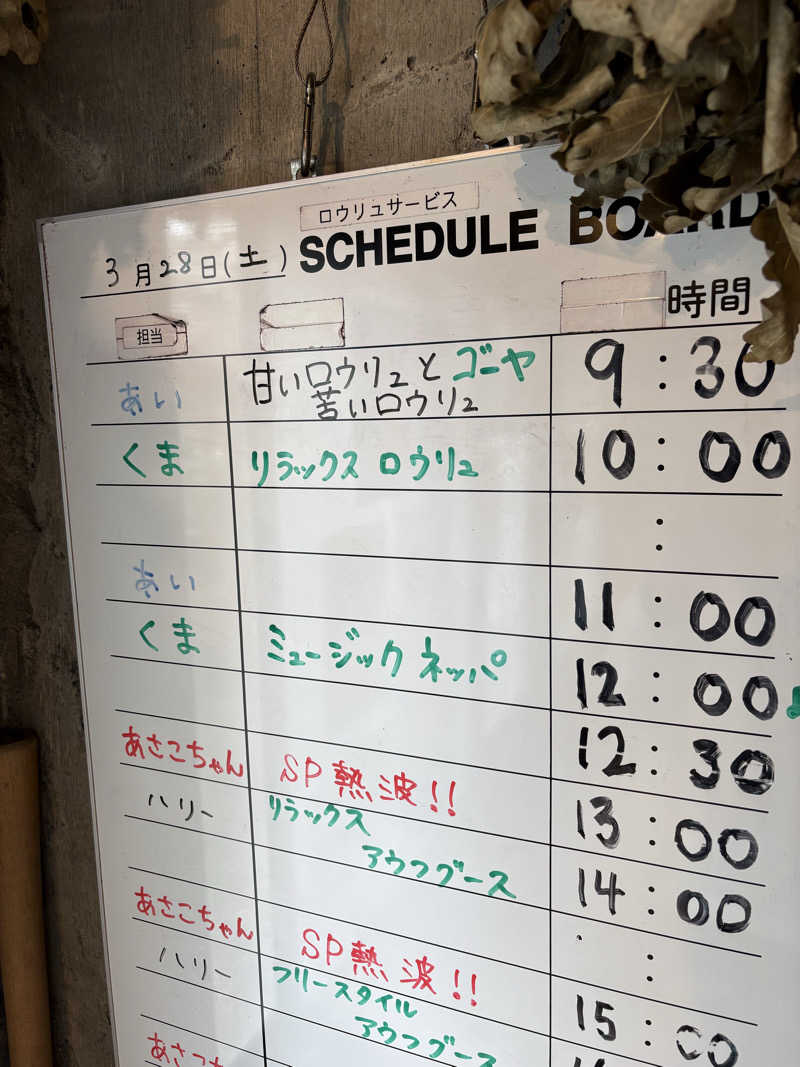 ロウリュサービス
3月28日(土) SCHEDULE BOARD
担当 時間
あい 甘いロウリュとゴーヤ 9:30
苦いロウリュ
くま リラックス ロウリュ 10:00
:
あい 11:00
くま ミュージック ネッパ 12:00
12:30
あさこちゃん SP熱波!! 13:00
ハリー リラックス 14:00
アウフグース
:
あさこちゃん SP熱波!! 15:00
ハリー フリースタイル
アウフグース